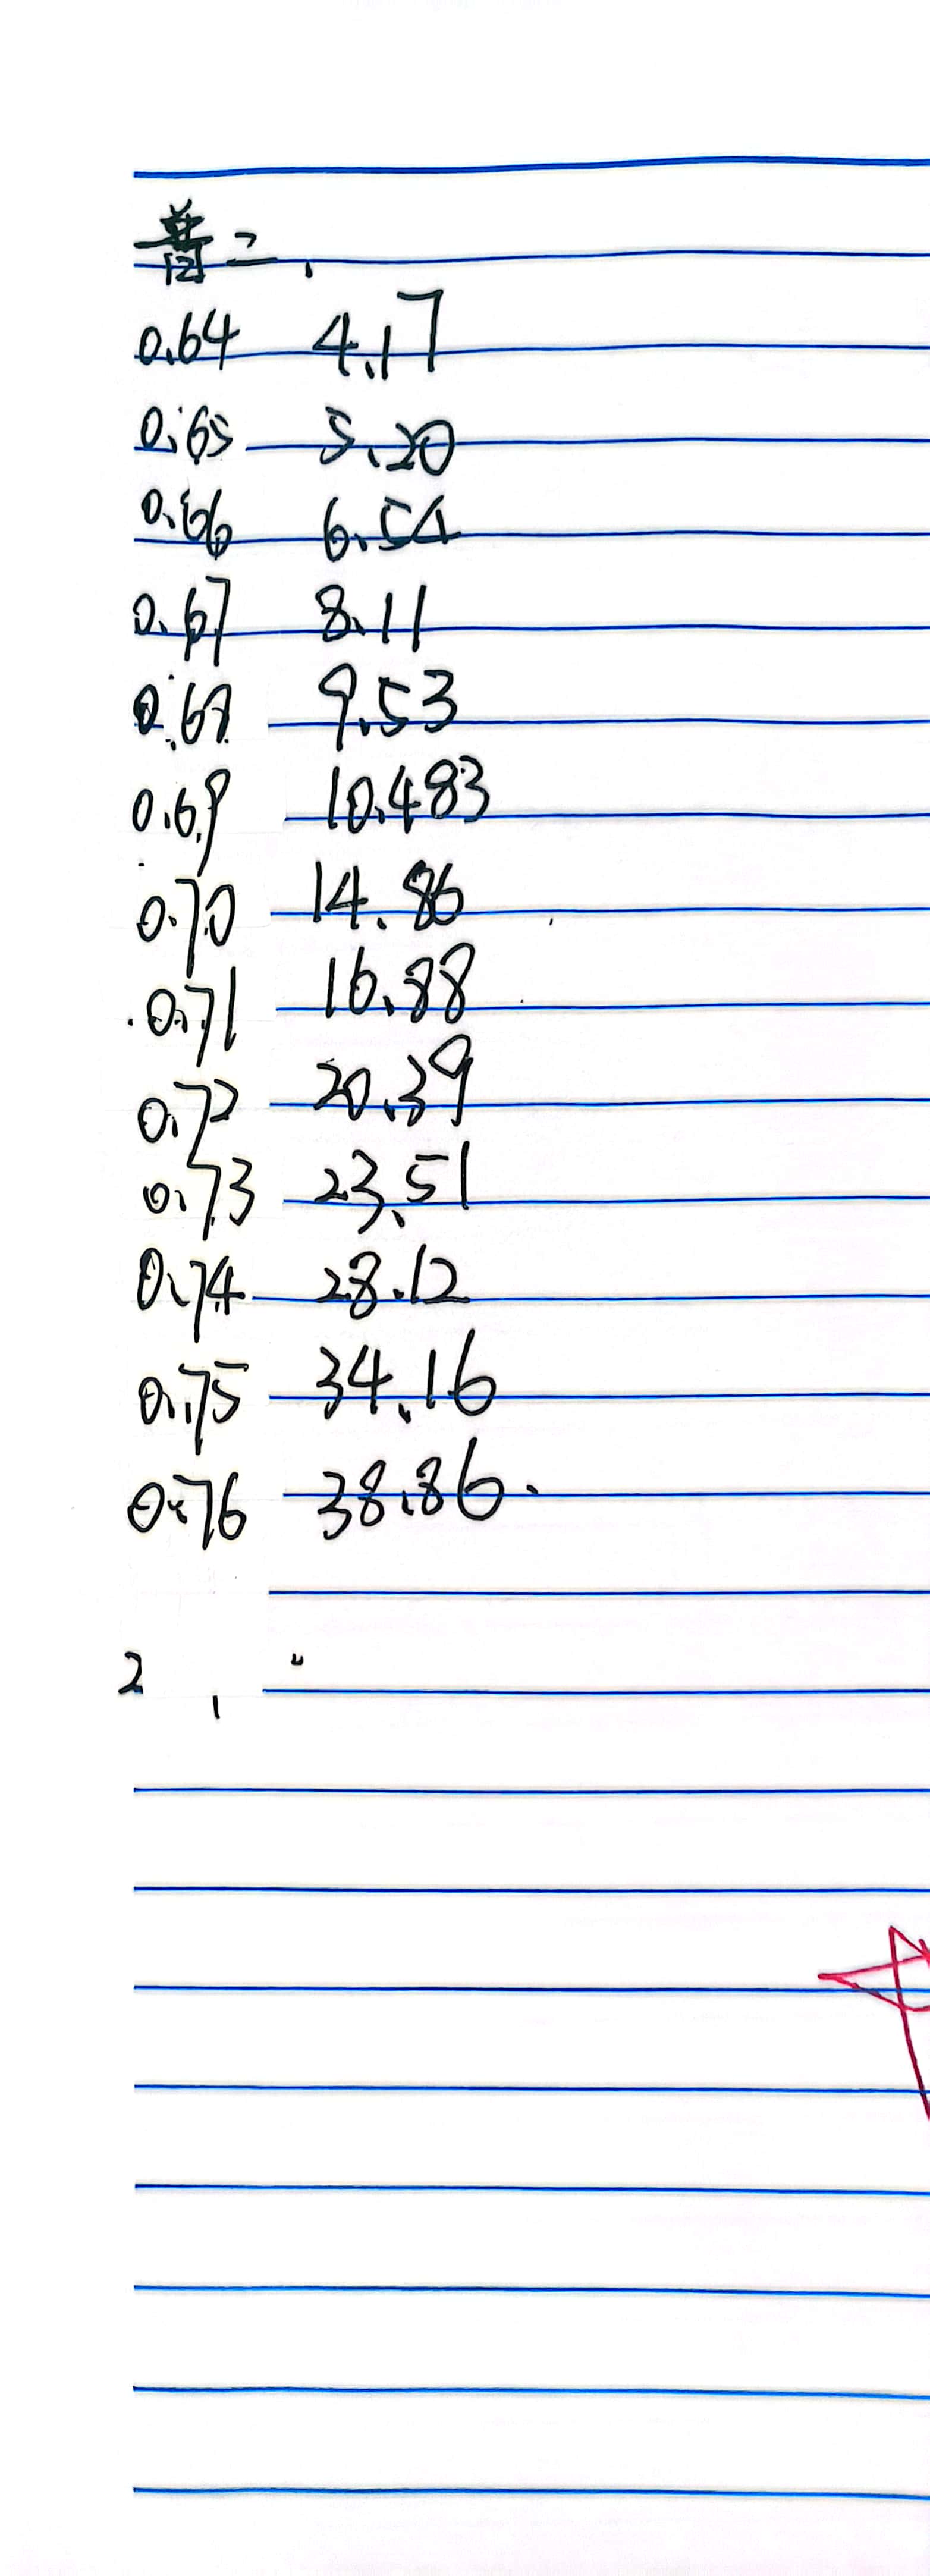 普二.
0.64 4.17
0.65 5.20
0.66 6.54
0.67 8.11
0.68 9.53
0.69 10.483
0.70 14.86
0.71 16.88
0.72 20.39
0.73 23.51
0.74 28.12
0.75 34.16
0.76 38.86.
2